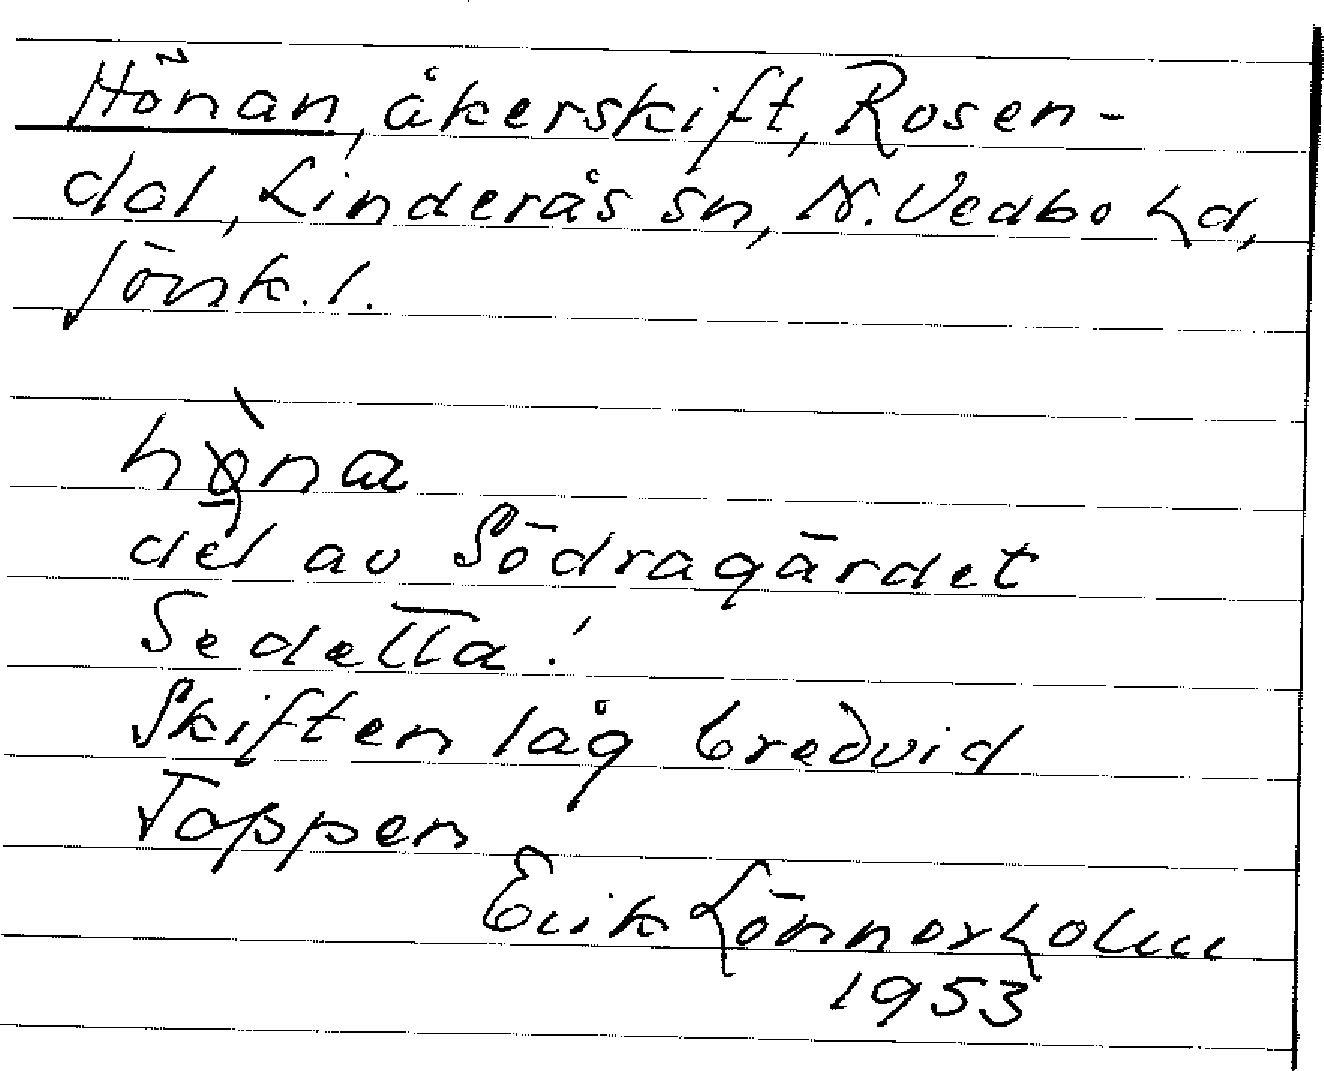 Hönan, åkerskift, Rosen-
dal, Linderås sn, N. Vedbo hd,
Jönk. l.
del av Södragärdet
Se detta!
Skiften låg bredvid
Toppen
Erik Lönnerholm
1953